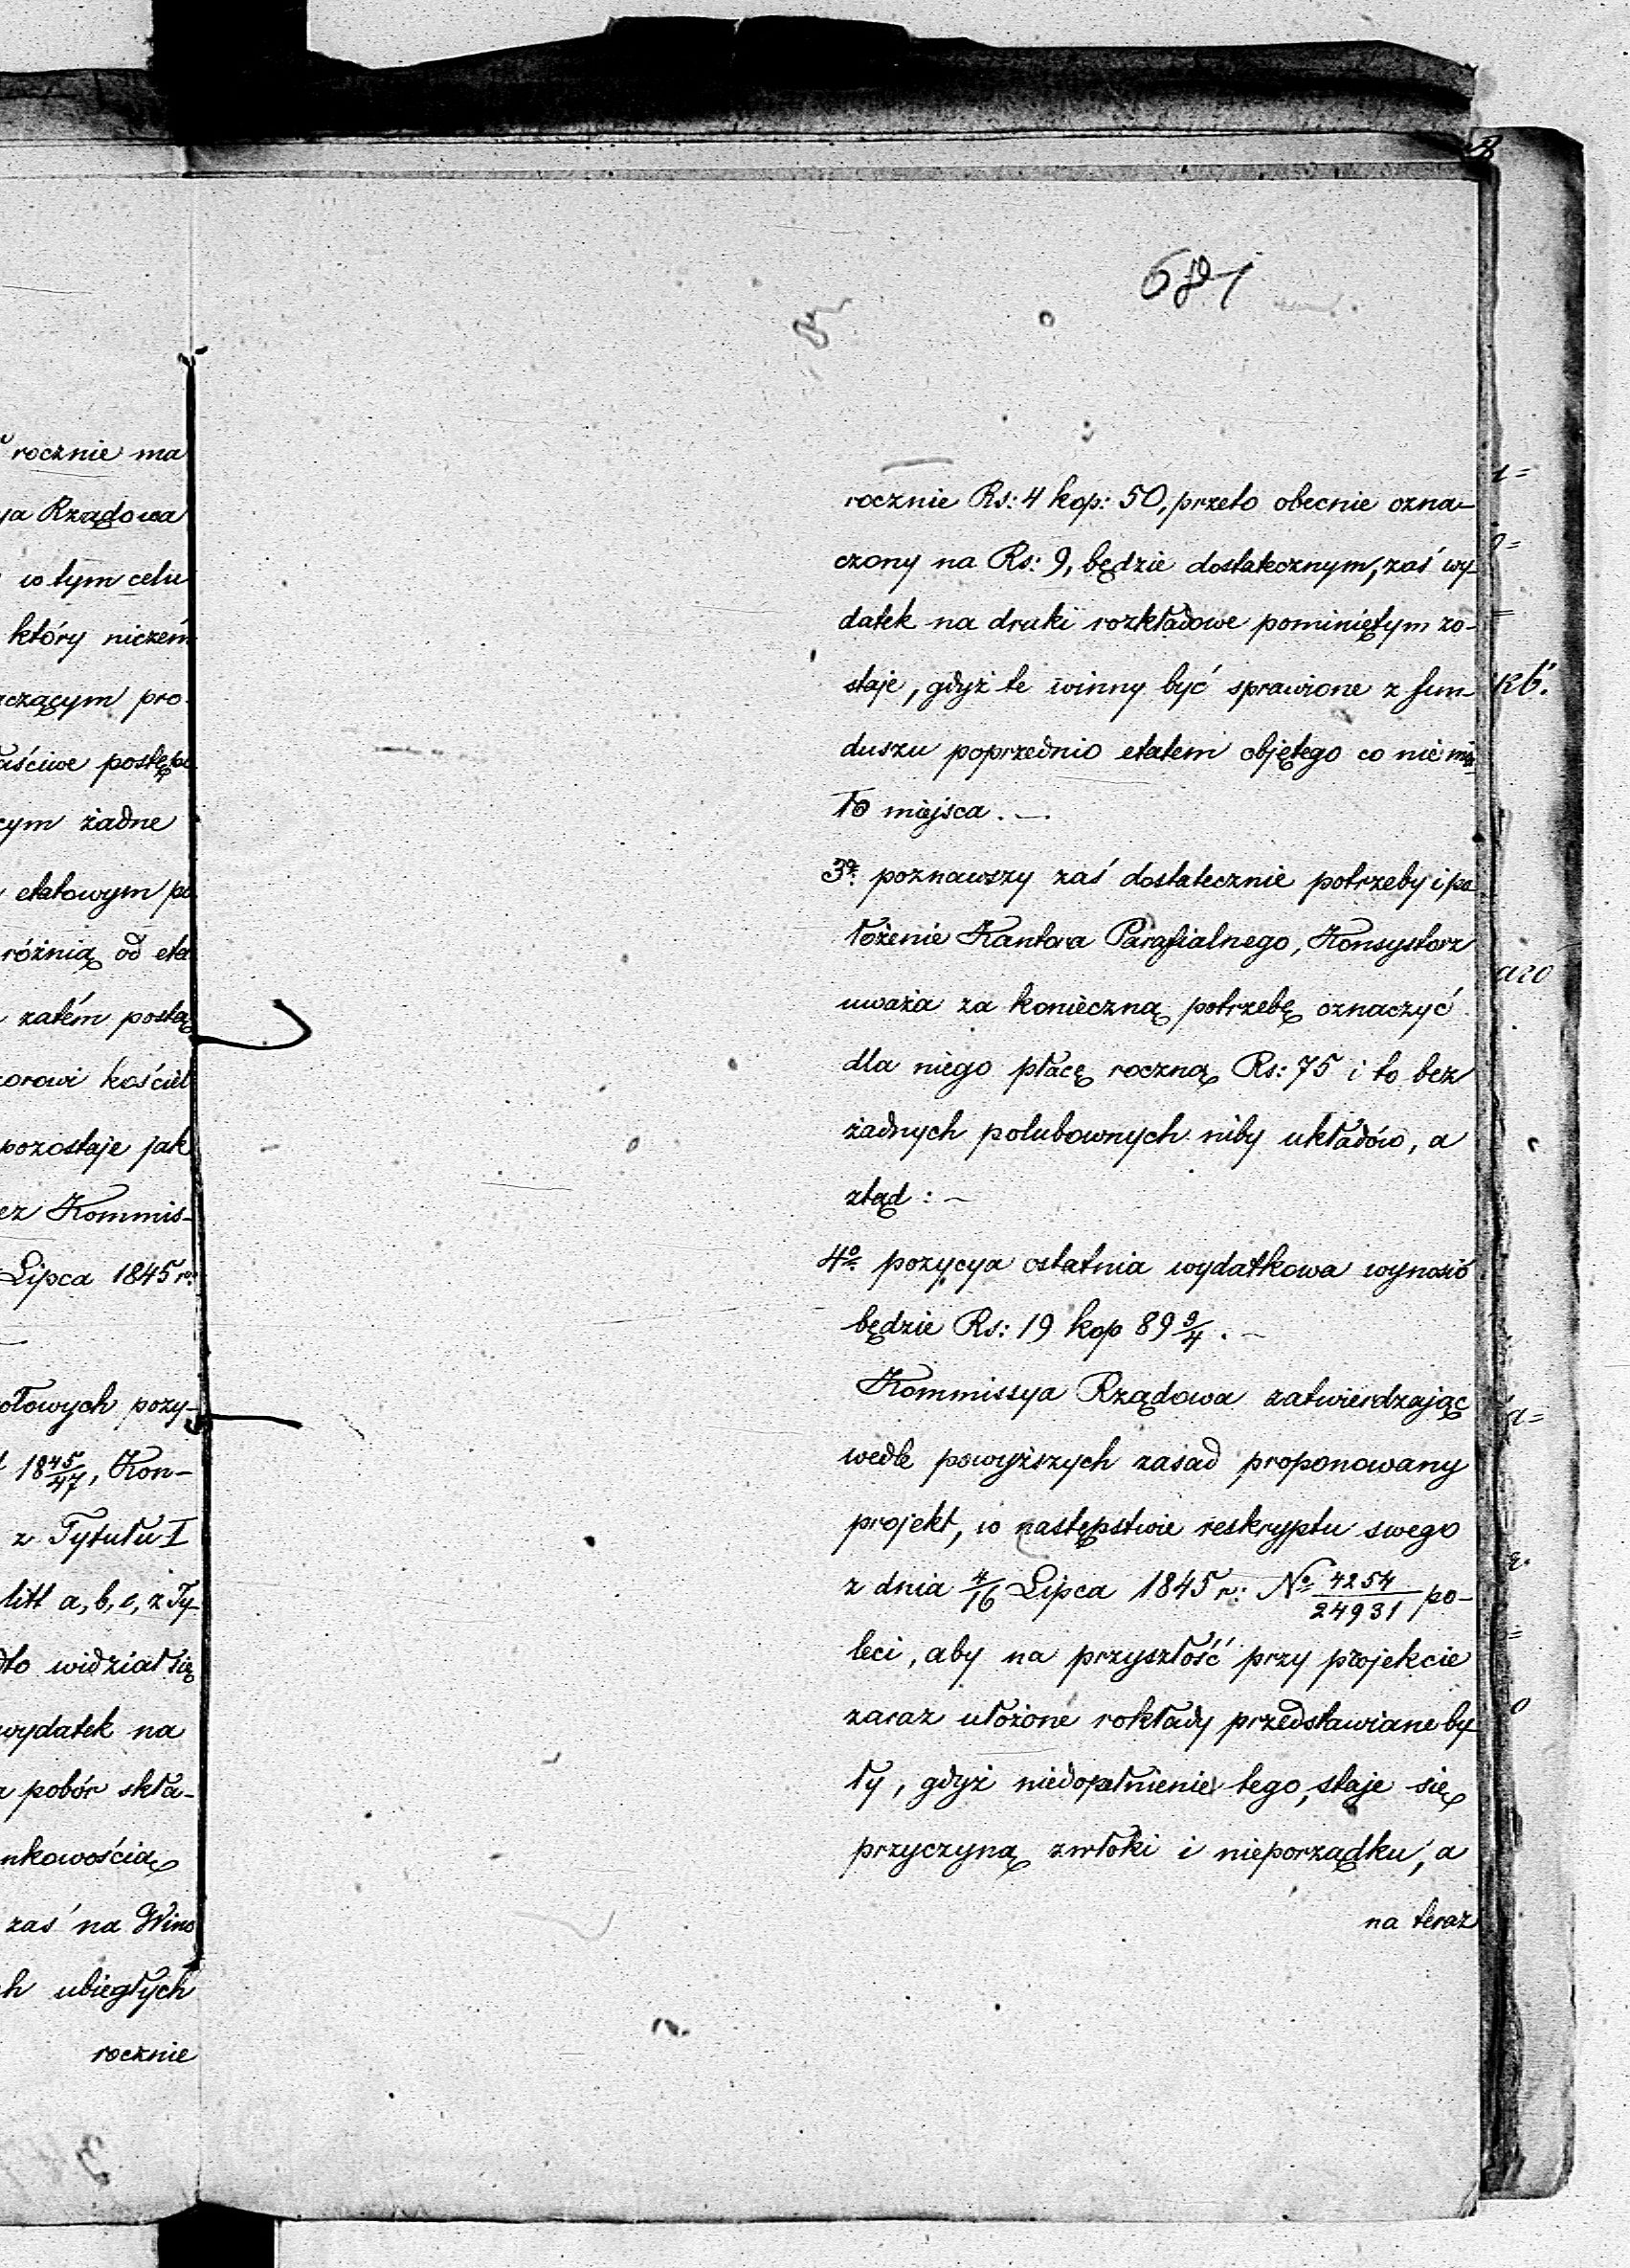 rocznie ma
ya Rządowa
w tym celu
który niczem
czącym pro-
aściwe postępo
cym żadne
etatowym po
różnią od eta
zatém postą
orowi kościel
pozostaje jak
ez Kommis-
Lipca 1845 r:
ołowych pozy-
18 45/47, Kon-
z Tytułu I
litt a, b, c, z Ty-
dło widział się
wydatek na
pobór skła-
nkowością
zaś na Wino
ch ubiegłych
rocznie
681
rocznie Rs: 4 kop: 50, przeto obecnie ozna-
czony na Rs: 9, będzie dostatecznym, zaś wy-
datek na druki rozkładowe pominiętym zo-
staje, gdyż te winny być sprawione z fun-
duszu poprzednio etatem objętego co nie mia-
ło miejsca. —
3º poznawszy zaś dostatecznie potrzeby i po
łożenie Kantora Parafialnego, Konsystorz
uważa za konieczną potrzebę oznaczyć
dla niego płacę roczną Rs: 75 i to bez
żadnych polubownych niby układów, a
ztąd: —
4º pozycya ostatnia wydatkowa wynosić
będzie Rs: 19 kop 89 3/4. —
Kommissya Rządowa zatwierdzając
wedle powyższych zasad proponowany
projekt, w następstwie reskryptu swego
z dnia 4/16 Lipca 1845 r: Nº 4254/24931 po-
leci, aby na przyszłość przy projekcie
zaraz ułożone rokłady przedstawiane by-
ły, gdyż niedopełnienie tego, staje się
przyczyną zwłoki i nieporządku, a
na teraz